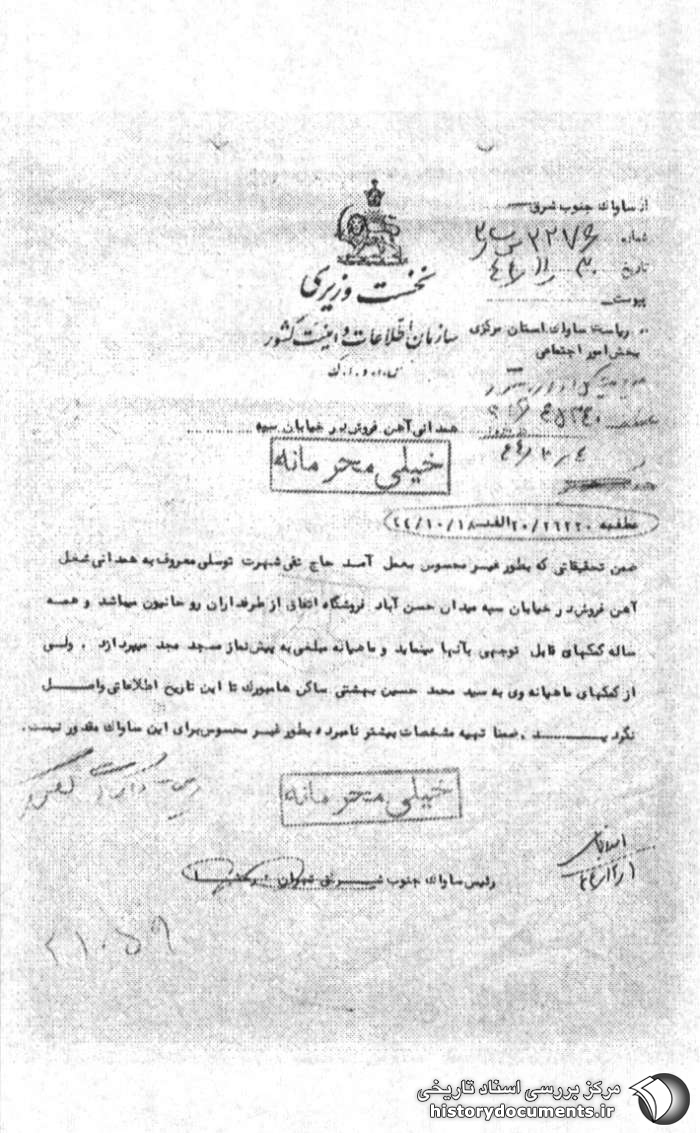 از ساواك جنوب شرق
شماره ۲۲۷۶
تاریخ ۳۰ / ۱۱ / ۴۴
پیوست
نخست وزیری
سازمان اطلاعات و امنیت کشور
س.ا.و.ا.ک
ریاست ساواك استان مرکزی
بخش امور اجتماعی
همدانی آهن فروش در خیابان سپه
۴ / ۱۲ / ۴۴
خیلی محرمانه
عطف به ۲۰/۲۶۲۲۰ الف ـ ۴۴/۱۰/۱۸
ضمن تحقیقاتی که بطور غیر محسوس بعمل آمد حاج تقی شهرت توسلی معروف به همدانی شغل
آهن فروش در خیابان سپه میدان حسن آباد فروشگاه اتفاق از طرفداران روحانیون میباشد و همه
ساله کمکهای قابل توجهی بآنها مینماید و ماهیانه مبلغی به پیش نماز مسجد مجد میپردازد . ولی
از کمکهای ماهیانه وی به سید محمد حسین بهشتی ساکن هامبورك تا این تاریخ اطلاعاتی واصل
نگردیده . ضمنا تهیه مشخصات بیشتر نامبرده بطور غیر محسوس برای این ساواك مقدور نیست .
خیلی محرمانه
رئیس ساواك جنوب شرقی تهران
۲۱۰۵۹
مرکز بررسی اسناد تاریخی
historydocuments.ir